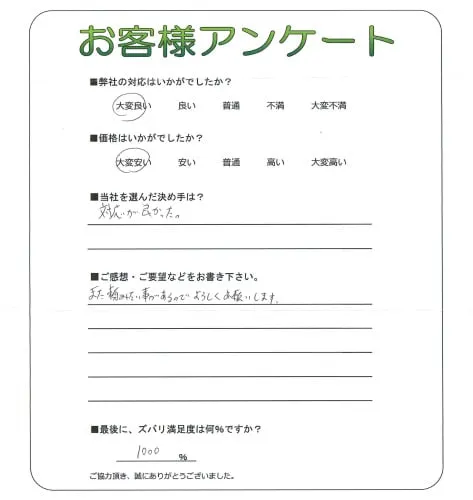 お客様アンケート
■弊社の対応はいかがでしたか?
大変良い 良い 普通 不満 大変不満
■価格はいかがでしたか?
大変安い 安い 普通 高い 大変高い
■当社を選んだ決め手は?
対応が良かった。
■ご感想・ご要望などをお書き下さい。
また頼みたい事があるのでよろしくお願いします。
■最後に、ズバリ満足度は何%ですか?
1000 %
ご協力頂き、誠にありがとうございました。